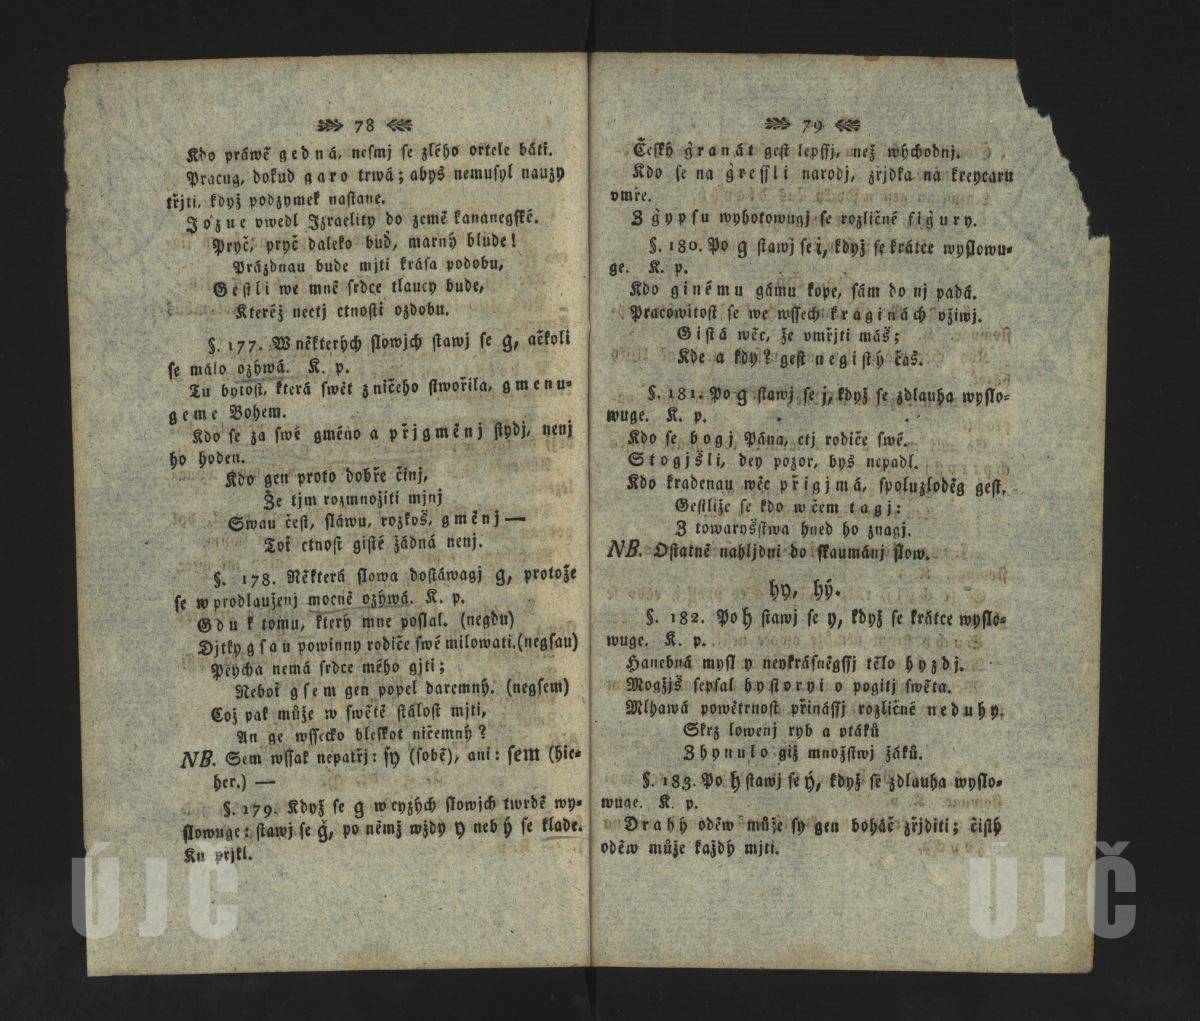 78
Kdo práwě gedná, nesmj se zlého ortele báti.
Pracug, dokud garo trwá; abys nemusyl nauzy
třjti, když podzymek nastane.
Jozue vwedl Izraelity do země kananegské.
Pryč, pryč daleko buď, marný blude!
Prázdnau bude mjti krása podobu,
Gestli we mně srdce tlaucy bude,
Kteréž nectj ctnosti ozdobu.
§. 177. W některých slowjch stawj se g, ačkoli
se málo ozýwá. K. p.
Tu bytost, která swět z ničeho stwořila, gmenu-
geme Bohem.
Kdo se za swé gméno a přjgměnj stydj, nenj
ho hoden.
Kdo gen proto dobře činj,
Že tjm rozmnožiti mjnj
Swau čest, sláwu, rozkoš, gměnj —
Toť ctnost gisté žádná nenj.
§. 178. Některá slowa dostáwagj g, protože
se w prodlauženj mocně ozýwá. K. p.
Gdu k tomu, který mne poslal. (negdu)
Djtky gsau powinny rodiče swé milowati. (negsau)
Peycha nemá srdce mého gjti;
Neboť gsem gen popel daremný. (negsem)
Což pak může w swětě stálost mjti,
An ge wssecko bleskot ničemný?
NB. Sem wssak nepatřj: sy (sobě), ani: sem (hie-
her.) —
§. 179. Když se g w cyzých slowjch twrdě wy-
slowuge: stawj se ǧ, po němž wždy y neb ý se klade.
Ku přjkl.
79
Český ǧranát gest lepssj, než wýchodnj.
Kdo se na ǧressli narodj, zřjdka na kreycaru
vmře.
Z ǧypsu wyhotowugj se rozličné fiǧury.
§. 180. Po g stawj se i, když se krátce wyslowu-
ge. K. p.
Kdo ginému gámu kope, sám do nj padá.
Pracowitost se we wssech kraginách vžiwj.
Gistá wěc, že vmřjti máš;
Kde a kdy? gest negistý čas.
§. 181. Po g stawj se j, když se zdlauha wyslo-
wuge. K. p.
Kdo se bogj Pána, ctj rodiče swé.
Stogjšli, dey pozor, bys nepadl.
Kdo kradenau wěc přigjmá, spoluzloděg gest.
Gestliže se kdo w čem tagj:
Z towaryšstwa hned ho znagj.
NB. Ostatně nahljdni do skaumánj slow.
hy, hý.
§. 182. Po h stawj se y, když se krátce wyslo-
wuge. K. p.
Hanebná mysl y neykrásněgssj tělo hyzdj.
Mogžjš sepsal hystoryi o pogitj swěta.
Mlhawá powětrnost přinássj rozličné neduhy.
Skrz lowenj ryb a ptáků
Zhynulo giž množstwj žáků.
§. 183. Po h stawj se ý, když se zdlauha wyslo-
wuge. K. p.
Drahý oděw může sy gen boháč zřjditi; čistý
oděw může každý mjti.
ÚJČ
ÚJČ